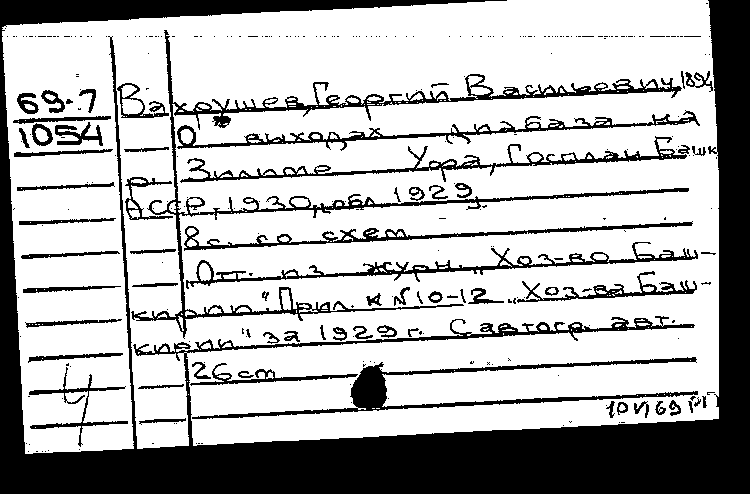 69-7
1054
Вахрушев, Георгий Васильевич, 1894
О выходах диабаза на
р. Зилиме Уфа, Госплан Башк
АССР, 1930, обл. 1929
8с. со схем
„Отт. из журн. „Хоз-во Баш-
кирии". Прил. к N 10-12 „Хоз-ва Баш-
кирии" за 1929 г. С автогр. авт.
26 cm
4
10 VI 69